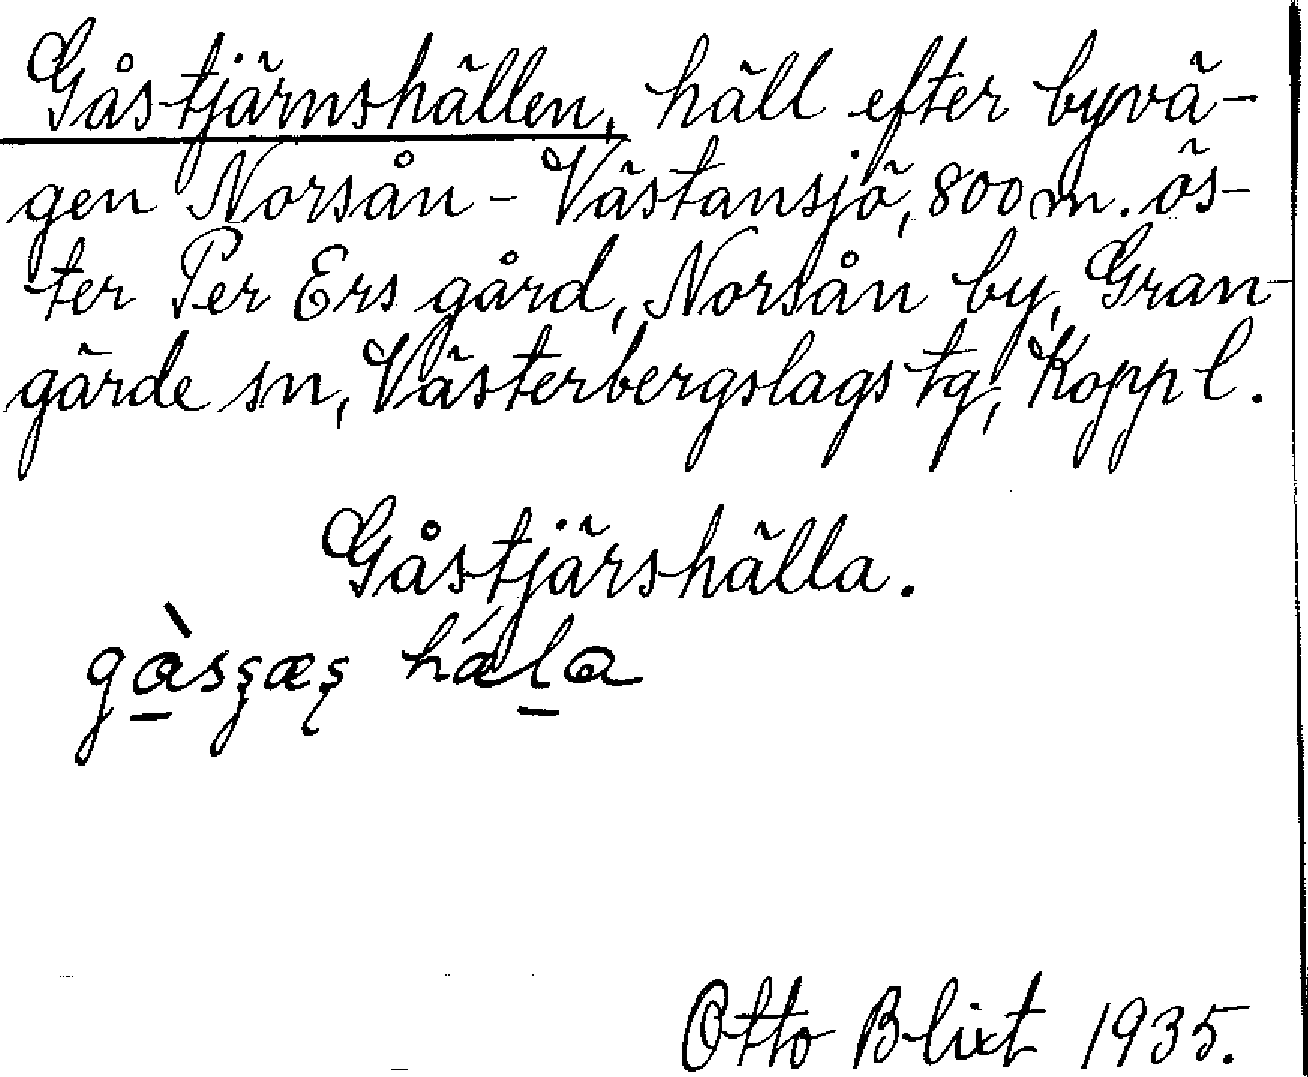 Gåstjärnshällen, häll efter byvä-
gen Norsån - Västansjö, 800 m. ös-
ter Per Ers gård, Norsån by, Gran-
gärde sn, Västerbergslags tg, Koppl.
Gåstjärshälla.
Otto Blixt 1935.